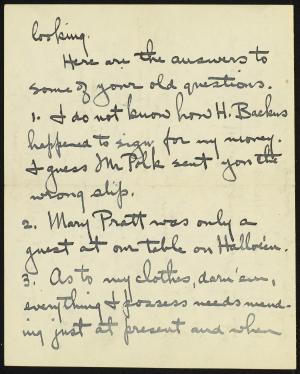 looking.
Here are the answers to
some of your old questions.
1. I do not know how H. Backus
happened to sign for my money.
I guess Mr Polk sent you the
wrong slip.
2. Mary Pratt was only a
guest at our table on Hallowe'en.
3. As to my clothes, darn 'em,
everything I possess needs mend-
ing just at present and when